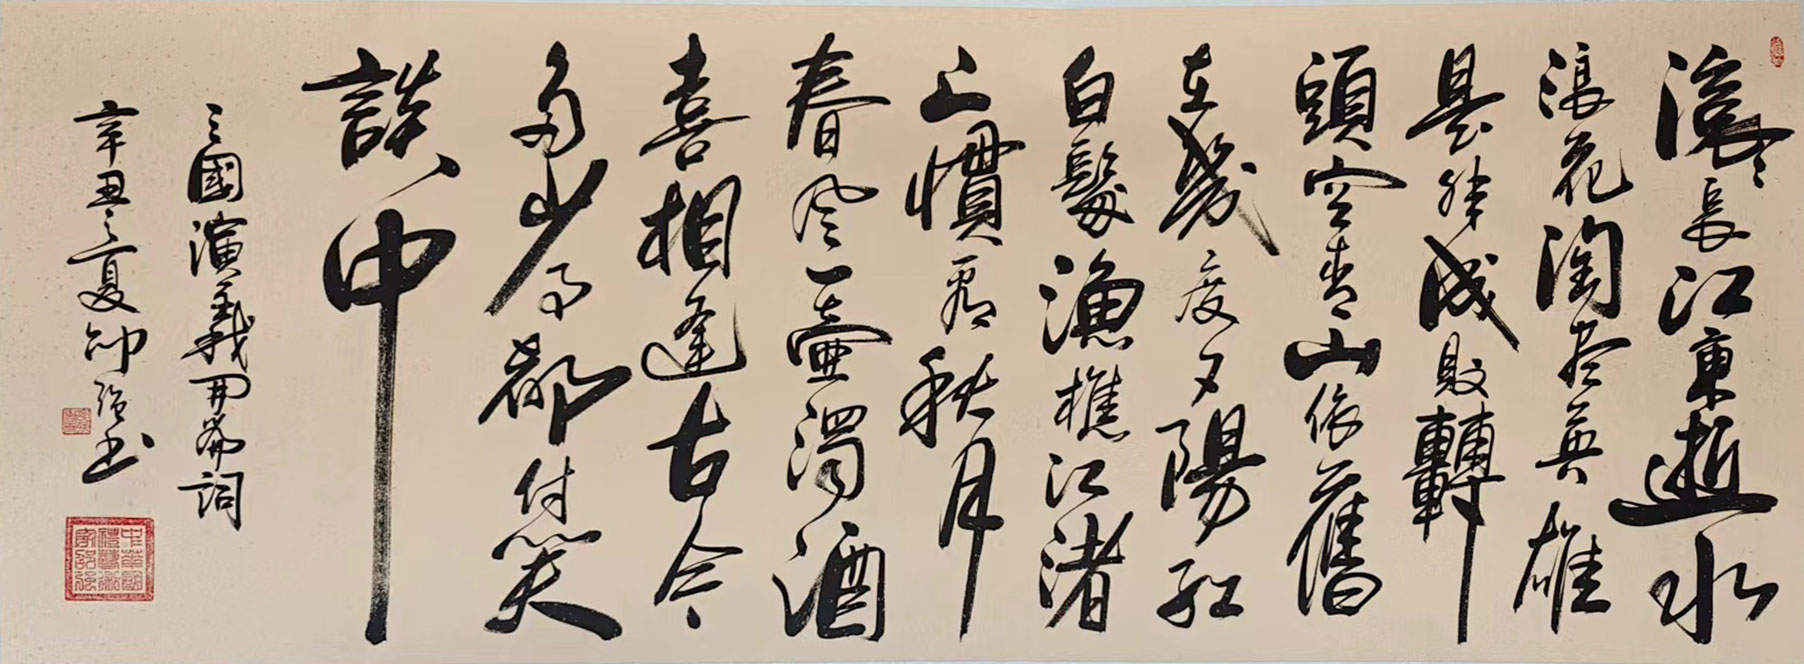 滾滾長江東逝水
浪花淘盡英雄
是非成敗轉
頭空青山依舊
在幾度夕陽紅
白髮漁樵江渚
上慣看秋月
春風一壺濁酒
喜相逢古今
多少事都付笑
談中
三國演義開篇詞
辛丑之夏邵强書
中華國禮藝術家邵强